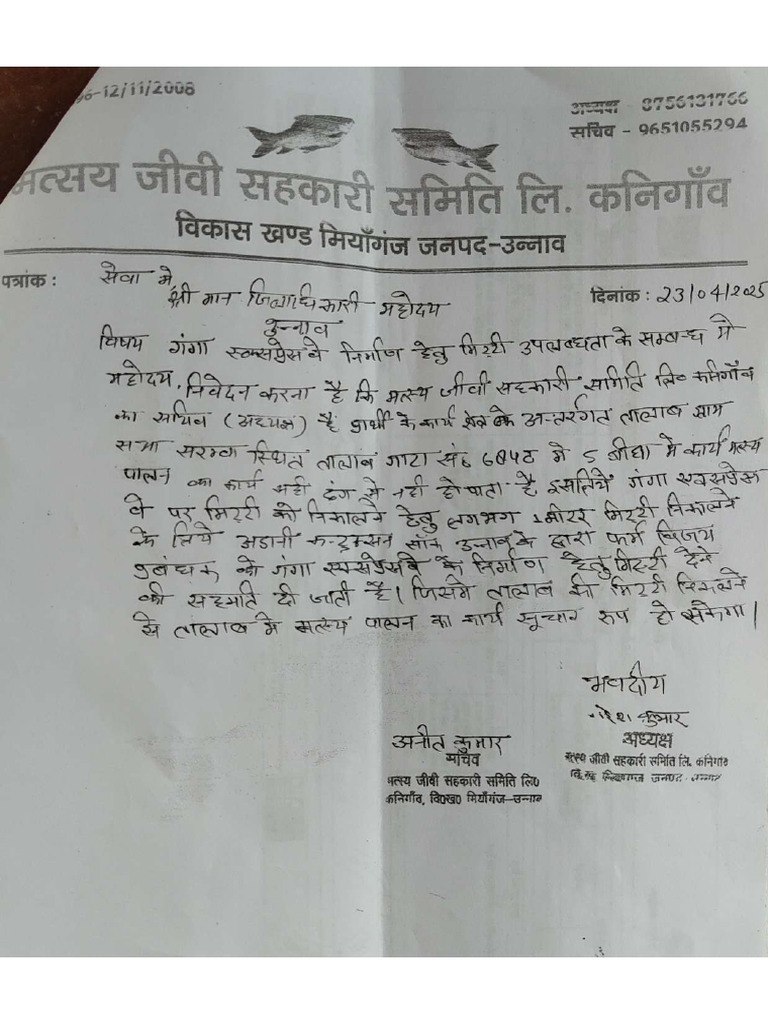 96-12/11/2008
अध्यक्ष - 8756131766
सचिव - 9651055294
मत्सय जीवी सहकारी समिति लि. कनिगाँव
विकास खण्ड मियाँगंज जनपद-उन्नाव
पत्रांक : सेवा में दिनांक : 23/04/2025
श्री मान जिलाधिकारी महोदय
उन्नाव
विषय गंगा एक्सप्रेस वे निर्माण हेतु मिट्टी उपलब्धता के सम्बन्ध में
महोदय, निवेदन करना है कि मत्स्य जीवी सहकारी समिति लि० कनिगाँव
का सचिव (अध्यक्ष) है प्रार्थी के कार्य क्षेत्र के अन्तर्गत तालाब ग्राम
सभा स्थित तालाब गाटा सं० में 5 बीघा में कार्य मत्स्य
पालन का कार्य सही ढंग से नही हो पाता है इसलिये गंगा एक्सप्रेस
वे पर मिट्टी को निकालने हेतु लगभग 1 मीटर मिट्टी निकालने
के लिये अडानी उन्नाव के द्वारा फर्म विजय
प्रबंधक को गंगा एक्सप्रेसवे के निर्माण हेतु मिट्टी देने
की सहमति दी जाती है। जिससे तालाब की मिट्टी निकलने
से तालाब में मत्स्य पालन का कार्य सूचार रूप हो सकेगा।
भवदीय
कुमार
अध्यक्ष
मत्स्य जीवी सहकारी समिति लि. कनिगांव
जनपद-उन्नाव
कुमार
सचिव
मत्सय जीवी सहकारी समिति लि०
कनिगाँव, वि०ख० मियाँगंज-उन्नाव